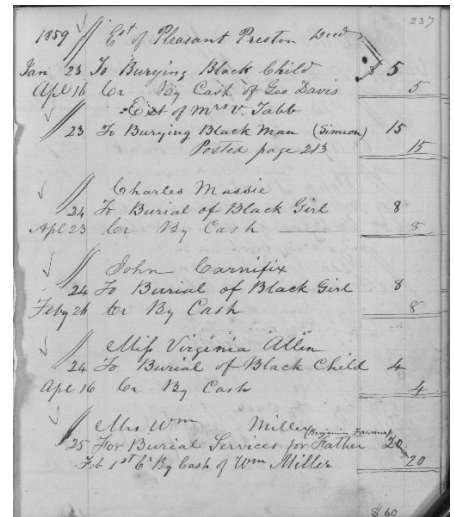 237
1859 // Est of Pleasant Preston Decd
Jan 23 To Burying Black Child $ 5
Apl 16 Cr By Cash of Geo Davis 5
Est of Mrs V. Tabb
23 To Burying Black Man (Simeon) 15
Posted page 213 15
Charles Massie
24 To Burial of Black Girl 8
Apl 23 Cr By Cash 8
John Carnifix
24 To Burial of Black Girl 8
Feby 26 Cr By Cash 8
Miss Virginia Allen
24 To Burial of Black Child 4
Apl 16 Cr By Cash 4
Mrs Wm Miller (Farmer)
25 For Burial Services for Father 20
Feb 1st Cr By Cash of Wm Miller 20
$60